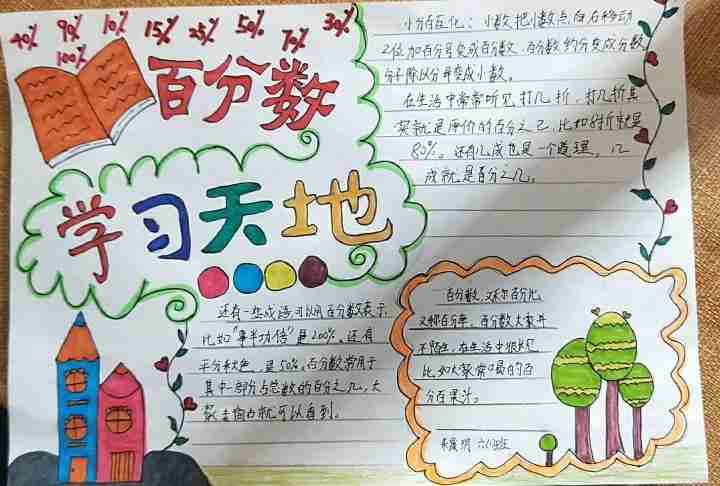 40% 90% 10% 15% 25% 50% 70% 30%
100%
百分数
学习天地
小分百互化：小数把小数点向右移动
2位加百分号变成百分数，百分数的分变成分数，
分子除以分母变成小数。
在生活中常常听见打几折，打几折其
实就是原价的百分之己，比如8折就是
80%。还有几成也是一个道理，几
成就是百分之几。
还有一些成语可以用百分数表示
比如“事半功倍”是200%。还有
平分秋色，是50%。百分数常用于
其中一部分占总数的百分之几，大
家去留白就可以看到。
百分数，又称百分比
又称百分率，百分数大家并
不陌生，在生活中很常见
比如大家常喝的百
分百果汁。
明 六(1)班